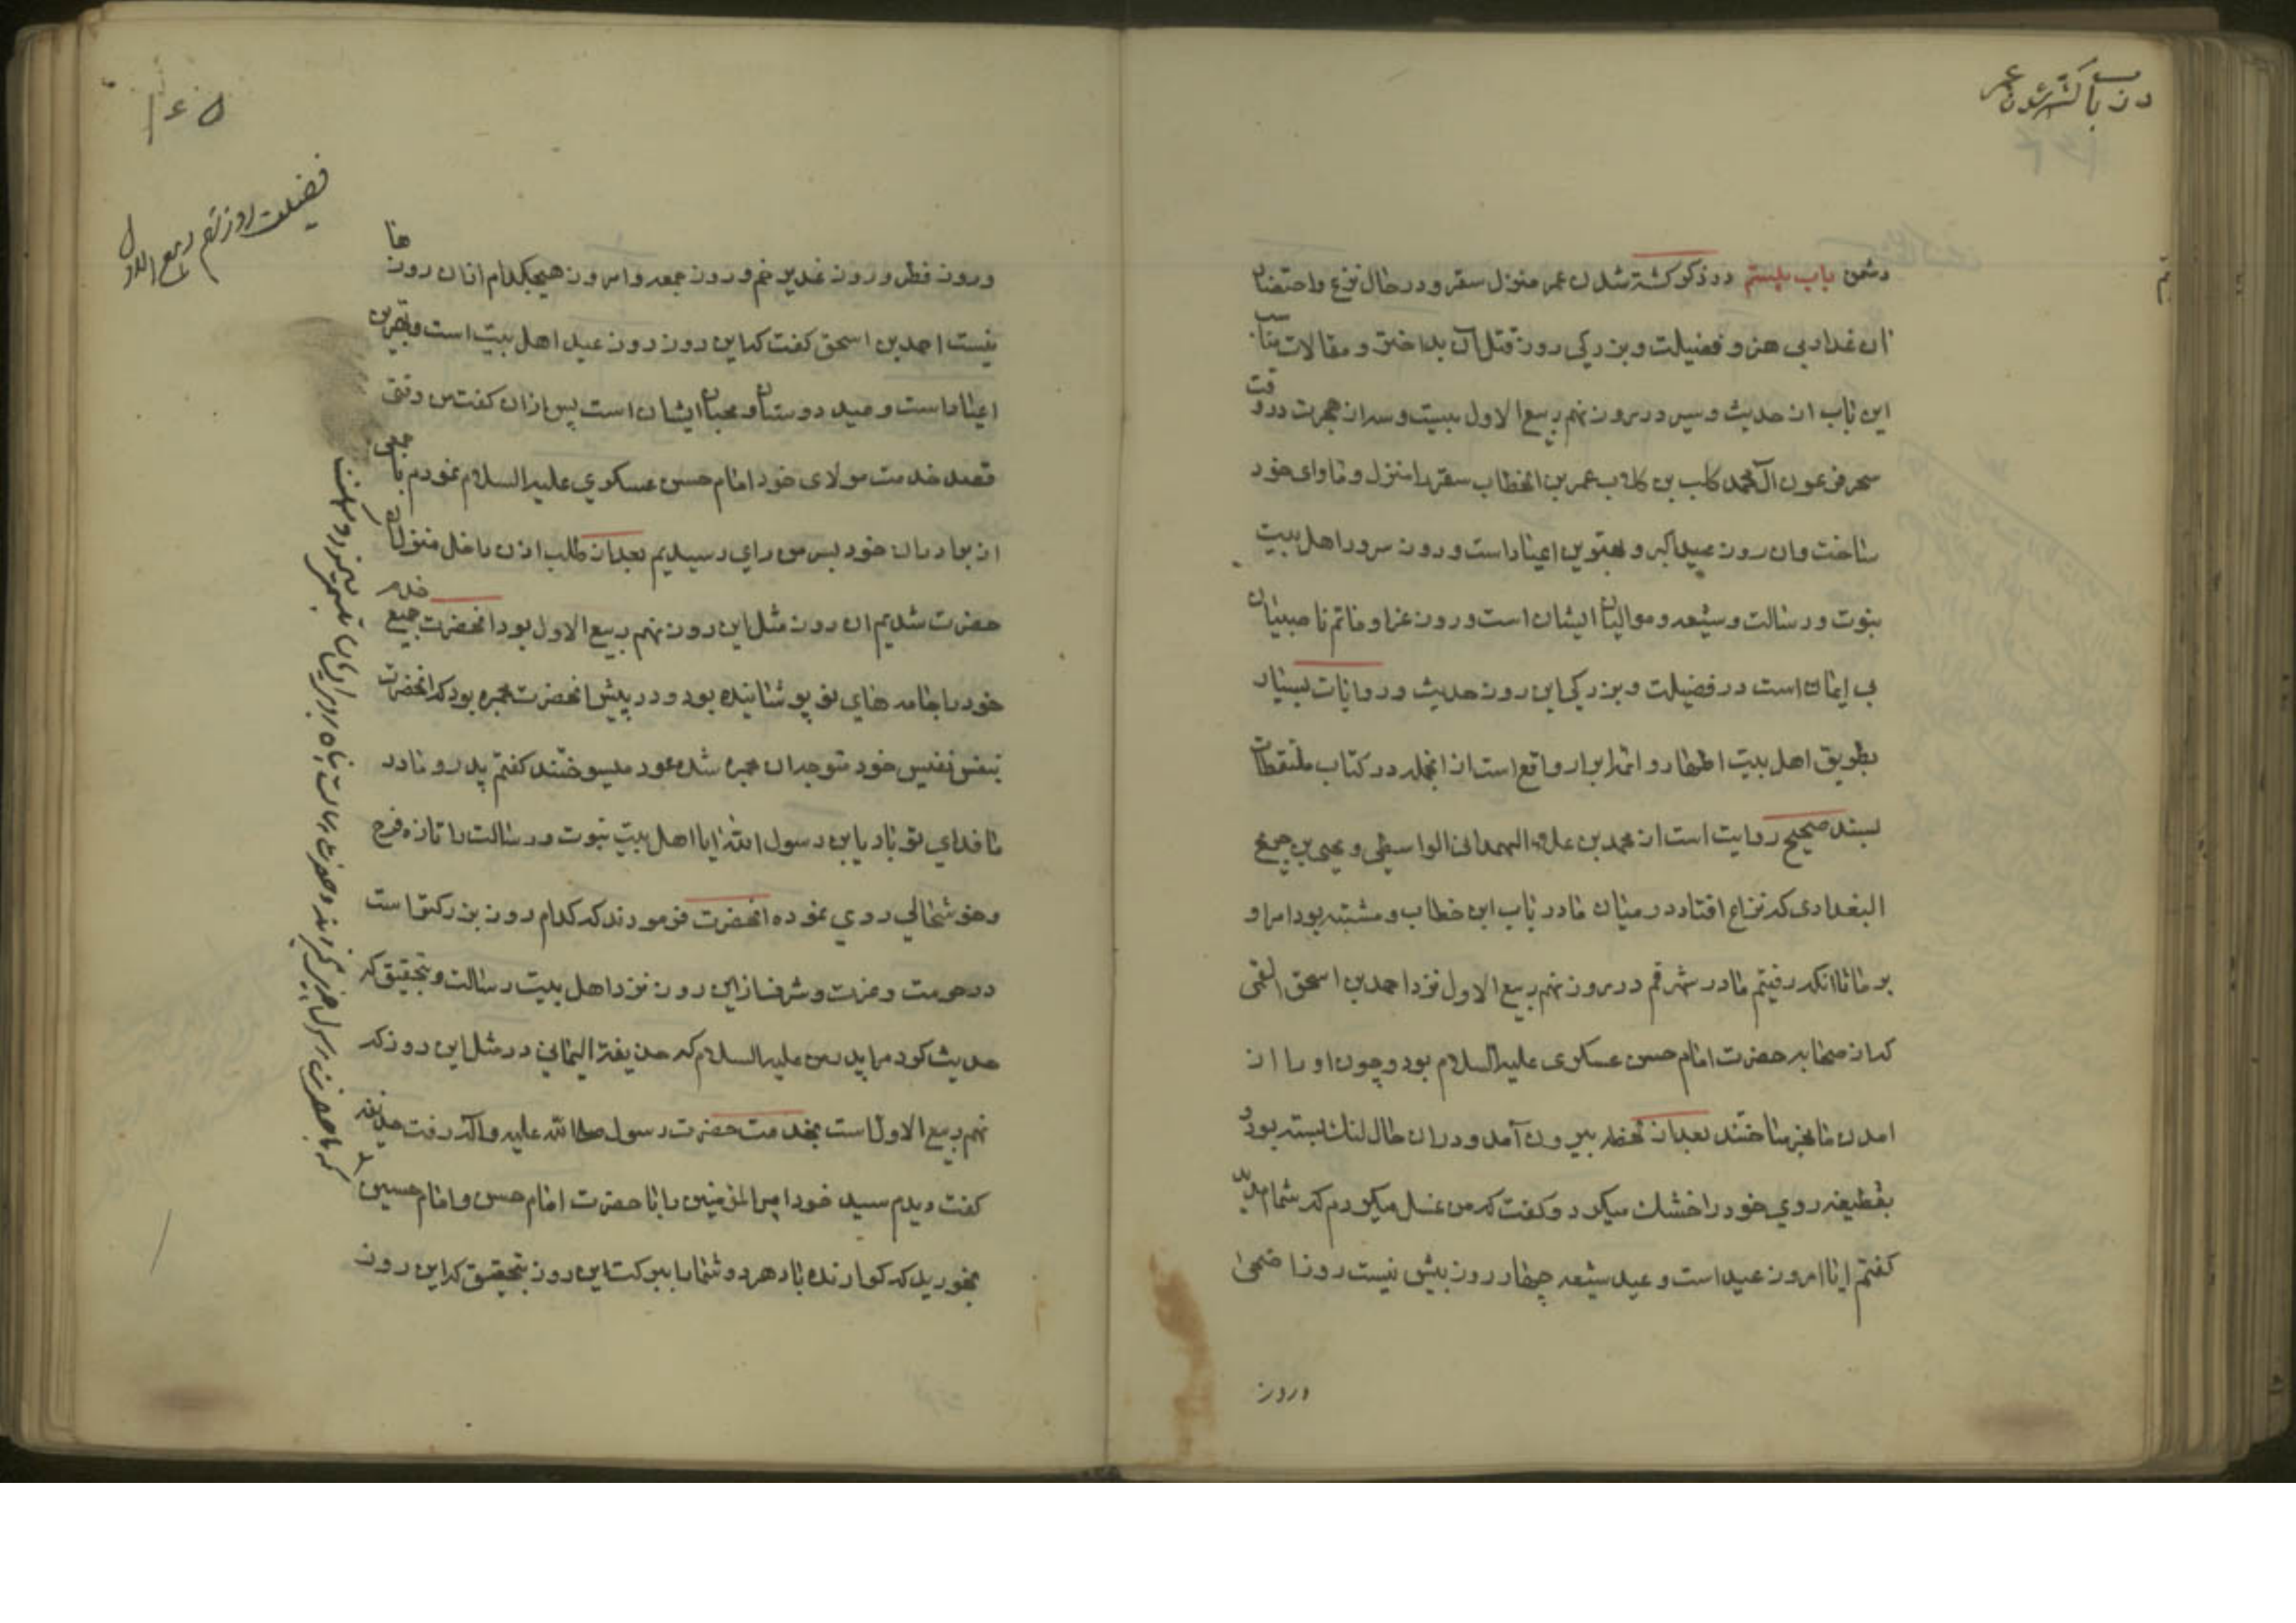 در باب کشته شدن عمر
دشمن باب بیستم در ذکر کشته شدن عمر منزل سقر و در حال نزع و احتضار
ان غدار بی هنر و فضیلت و بزرکی روز قتل آن بداختر و مقالات مناسب
این باب از حدیث و سیر در روز نهم ربیع الاول بیست و سه از هجرت در وقت
سحر فرعون آل محمد کلب بن کلاب عمر بن الخطاب سقر را منزل و ماوای خود
ساخت و ان روز عید اکبر و بهترین اعیاد است و روز سرور اهل بیت
نبوت و رسالت و شیعه و موالیان ایشان است و روز عزا و ماتم ناصبیان
بی ایمان است در فضیلت و بزرکی این روز حدیث و روایات بسیار
بطریق اهل بیت اطهار و ائمه ابرار واقع است از انجمله در کتاب ملتقطات
بسند صحیح روایت است از محمد بن علاء الهمدانی الواسطی و یحیی بن جریح
البغدادی که نزاع افتاد در میان ما در باب ابن خطاب و مشتبه بود امر او
بر ما تا انکه رفتیم ما در شهر قم در روز نهم ربیع الاول نزد احمد بن اسحق القمی
که از صحابه حضرت امام حسن عسکری علیه السلام بود و چون او را از
امدن ما خبر ساختند بعد از لحظه بیرون آمد و دران حال لنک بسته بود و
بقطیفه روی خود را خشک میکرد و کفت که من غسل میکردم که شما امدید
کفتم ایا امروز عید است و عید شیعه چهار روز بیش نیست روز اضحی
وروز
۱۶۵
فضیلت روز نهم ربیع الاول
وروز فطر وروز غدیر خم وروز جمعه و امروز هیچکدام ازان روزها
نیست احمد بن اسحق کفت که این روز روز عید اهل بیت است و بهترین
اعیاد است و عید دوستان و محبان ایشان است پس ازان کفت من وقتی
قصد خدمت مولای خود امام حسن عسکری علیه السلام نمودم با جمعی
از برادران خود بسر من رای رسیدیم بعد از طلب اذن داخل منزل ان
حضرت شدیم ان روز مثل این روز نهم ربیع الاول بود انحضرت جمیع خدام
خود را جامه های نو پوشانیده بود و در پیش انحضرت مجمره بود که انحضرت
بنفس نفیس خود متوجه ان مجمره شده عود میسوختند کفتم پدر و مادر
ما فدای تو باد یابن رسول الله ایا اهل بیت نبوت و رسالت را تازه فرح
و خوشحالی روی نموده انحضرت فرمودند که کدام روز بزرکتر است
در حرمت و عزت و شرف از این روز نزد اهل بیت رسالت و بتحقیق که
حدیث کرد مرا پدر من علیه السلام که حذیفة الیمانی در مثل این روز که
نهم ربیع الاول است بخدمت حضرت رسول صلی الله علیه و آله رفت حذیفه
کفت دیدم سید خود امیر المؤمنین را با حضرت امام حسن و امام حسین
بخورید که کوارنده باد هر دو شما را ببرکت این روز بتحقیق که این روز